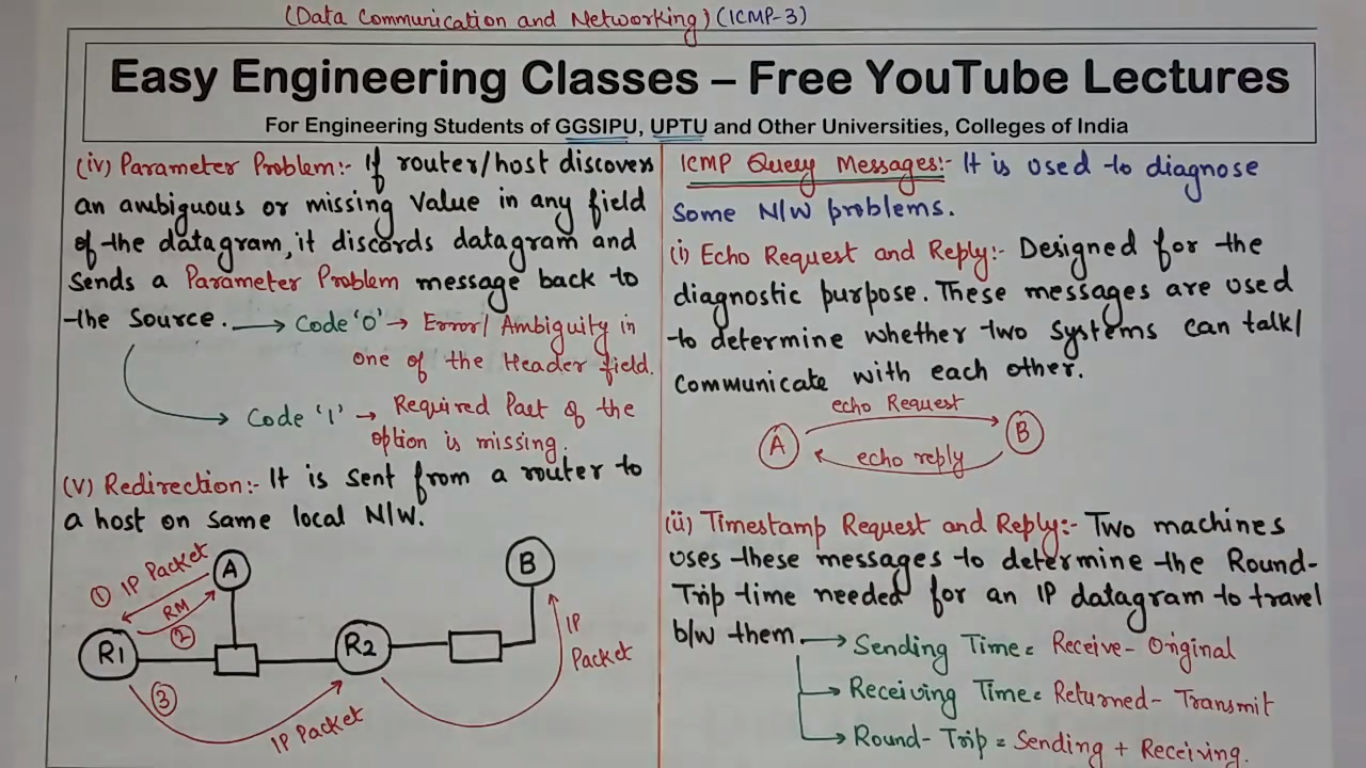 (Data Communication and Networking) (ICMP-3)
Easy Engineering Classes – Free YouTube Lectures
For Engineering Students of GGSIPU, UPTU and Other Universities, Colleges of India
(iv) Parameter Problem:- If router/host discovers
an ambiguous or missing Value in any field
of the datagram, it discards datagram and
sends a Parameter Problem message back to
the Source. → Code '0' → Error/ Ambiguity in
one of the Header field.
→ Code '1' → Required Part of the
option is missing.
(v) Redirection:- It is sent from a router to
a host on same local N/W.
① IP Packet
A
B
RM
②
R1
R2
IP
Packet
③
IP Packet
ICMP Query Messages:- It is used to diagnose
Some N/W problems.
(i) Echo Request and Reply:- Designed for the
diagnostic purpose. These messages are used
to determine whether two systems can talk/
communicate with each other.
echo Request
A
B
echo reply
(ii) Timestamp Request and Reply:- Two machines
uses these messages to determine the Round-
Trip time needed for an IP datagram to travel
b/w them. → Sending Time = Receive - Original
→ Receiving Time = Returned - Transmit
→ Round-Trip = Sending + Receiving.